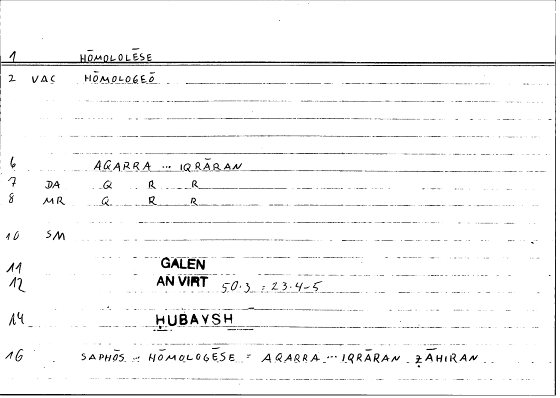 1 HŌMOLOLĒSE
2 VAC HŌMOLOGEŌ
6 AQARRA ... IQRĀRAN
7 DA Q R R
8 MR Q R R
10 SM
11 GALEN
12 AN VIRT 50.3 = 23.4-5
14 ḤUBAYSH
16 SAPHŌS ... HŌMOLOGĒSE = AQARRA ... IQRĀRAN ẒĀHIRAN